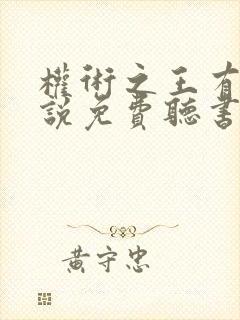 權術之王有
說免費聽書
黃守忠